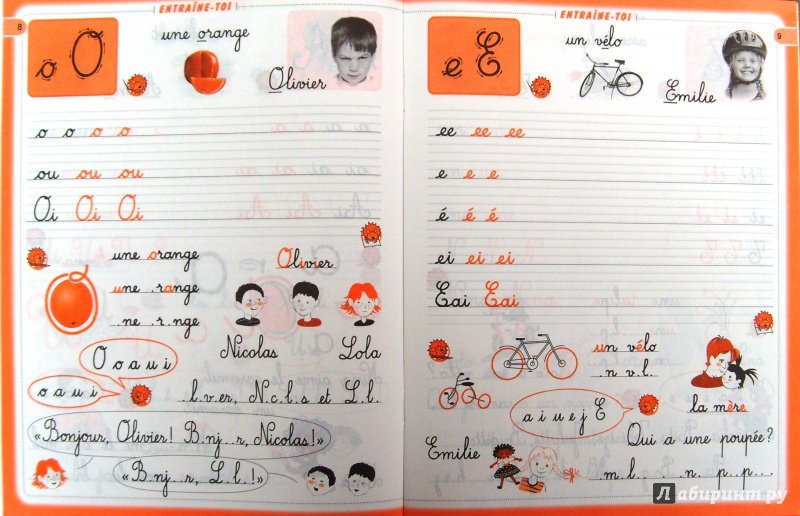 8
ENTRAÎNE-TOI
o O
une orange
Olivier
o o o o
ou ou ou
Oi Oi Oi
une orange
une .range
.ne .r.nge
Olivier
Nicolas
Lola
O o a u i
o a u i
..l.v.er, N.c.l.s et L.l.
«Bonjour, Olivier! B.nj..r, Nicolas!»
«B.nj..r, L.l..!»
9
ENTRAÎNE-TOI
e E
un vélo
Emilie
ee ee ee
e e e
é é é
ei ei ei
Eai Eai
un vélo
..n v.l..
a i u e j E
la mère
Emilie
Qui a une poupée?
..m..l... ..... n. p..p...
Лабиринт.ру